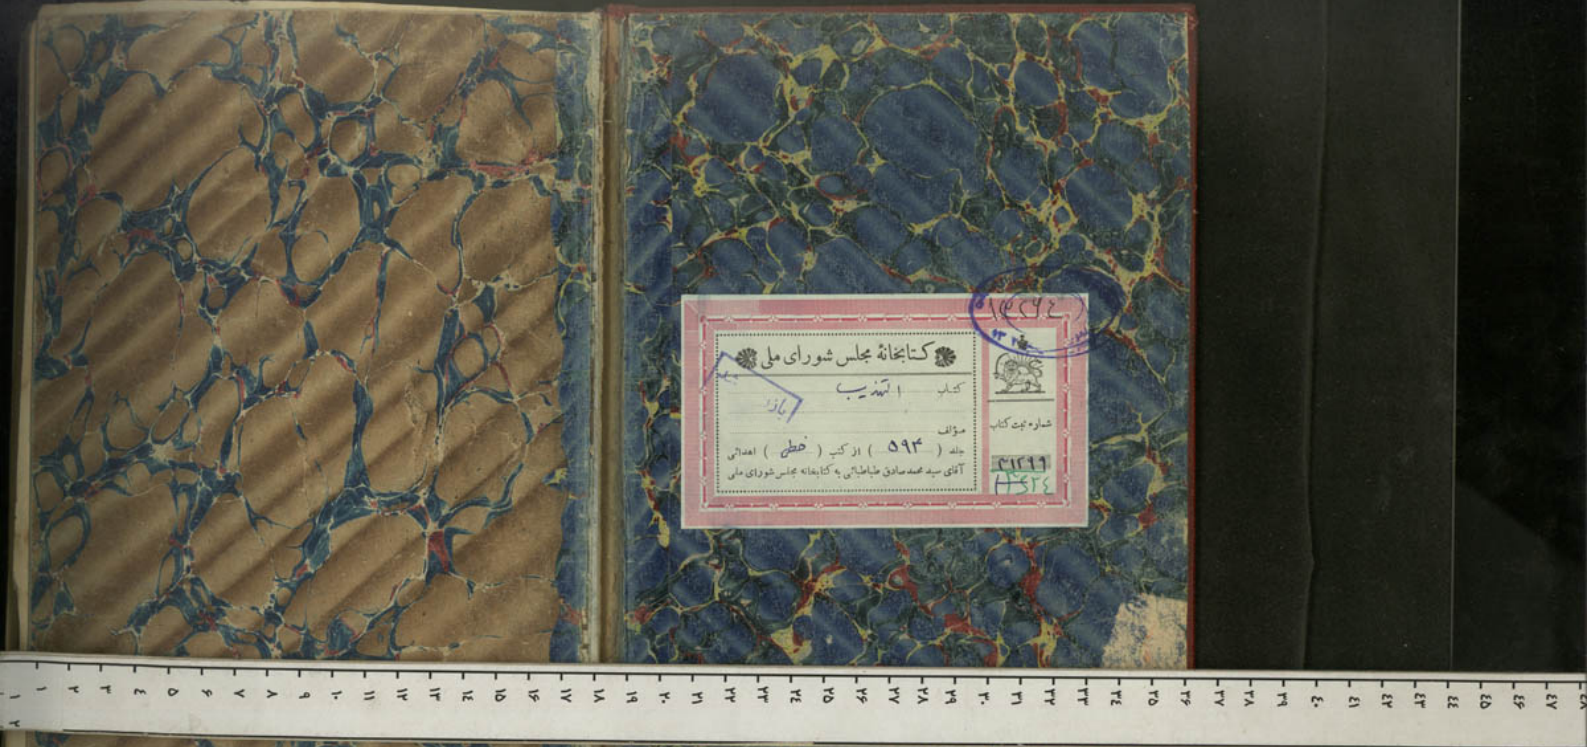 کتابخانهٔ مجلس شورای ملی
کتاب التهذیب
مؤلف
جلد ( ۵۹۴ ) از کتب ( خطی ) اهدائی
آقای سید محمد صادق طباطبائی به کتابخانه مجلس شورای ملی
شماره ثبت کتاب
۴۱۲۹۹
۱ ۲ ۳ ٤ ۵ ۶ ۷ ۸ ۹ ۱۰ ۱۱ ۱۲ ۱۳ ۱٤ ۱۵ ۱۶ ۱۷ ۱۸ ۱۹ ۲۰ ۲۱ ۲۲ ۲۳ ۲٤ ۲۵ ۲۶ ۲۷ ۲۸ ۲۹ ۳۰ ۳۱ ۳۲ ۳۳ ۳٤ ۳۵ ۳۶ ۳۷ ۳۸ ۳۹ ٤۰ ٤۱ ٤۲ ٤۳ ٤٤ ٤۵ ٤۶ ٤۷